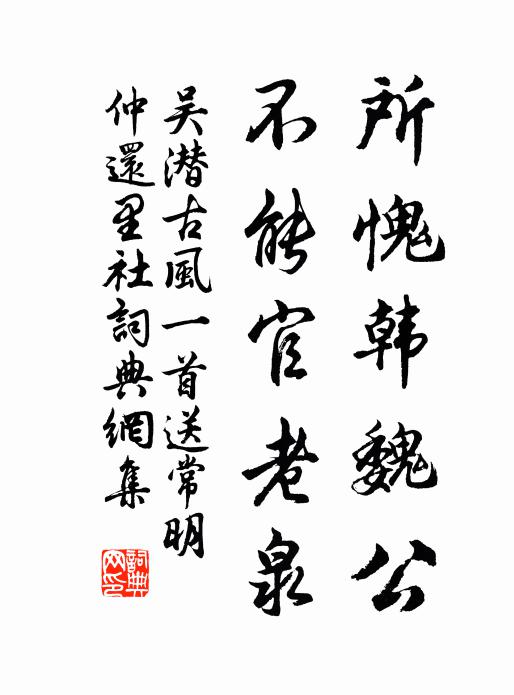 所愧韓魏公
不能官老泉
吴潜古風一首送常明
仲還里社詞典網集
詞典网印